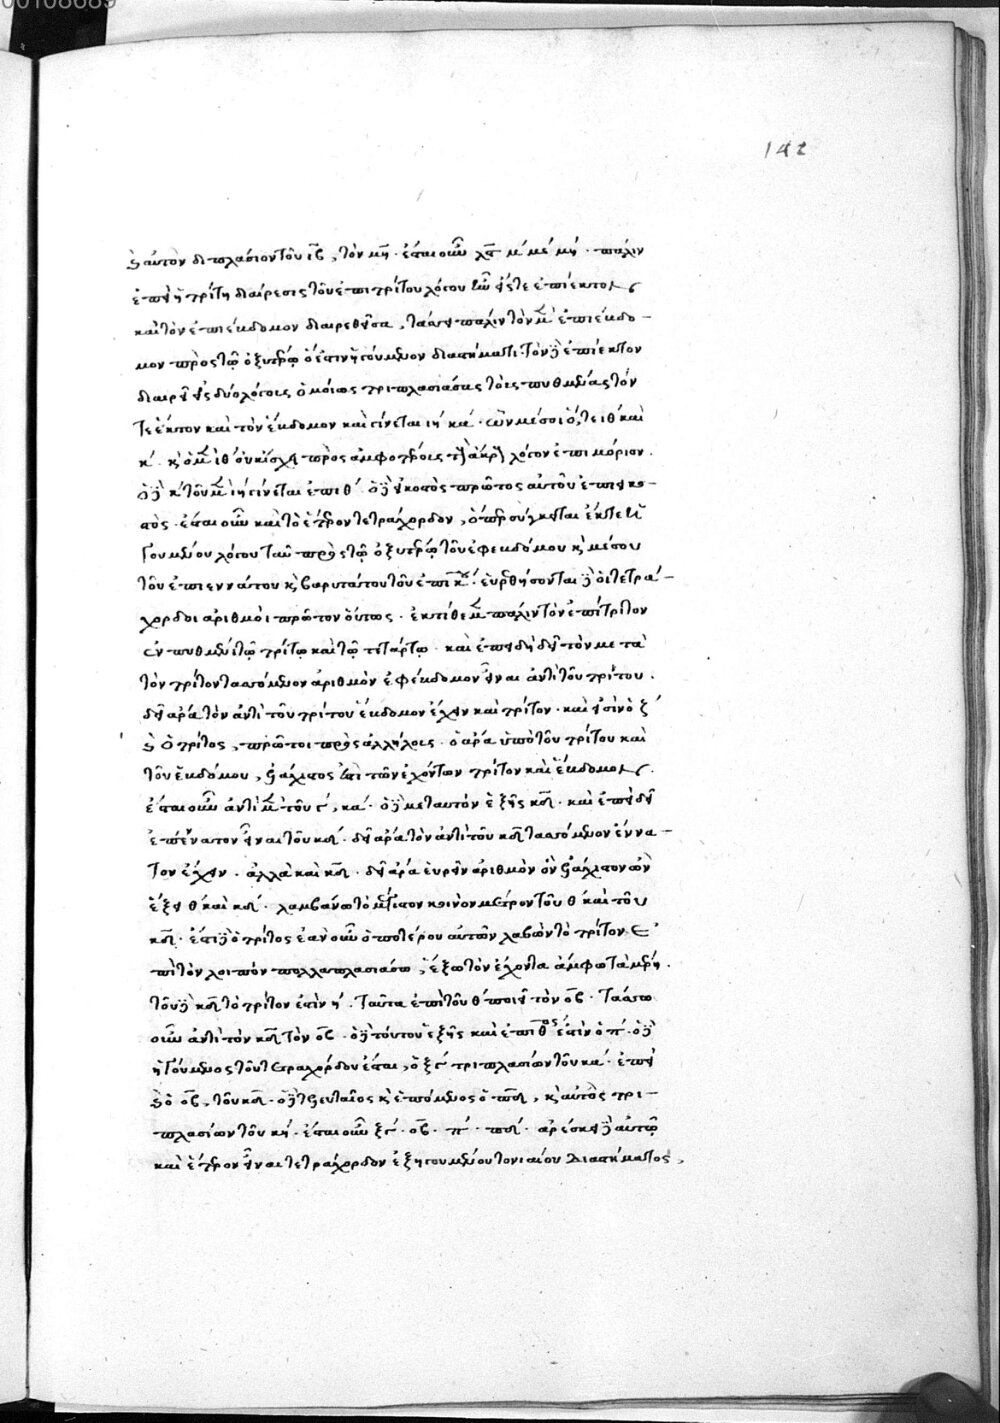 00108689
142
καὶ αὐτὸν διπλάσιον τοῦ ιβ, τὸν μη. ἔσται οὖν λϛ μ μέ μή. πάλιν
ἐπεὶ ἡ τρίτη διαίρεσις τοῦ ἐπιτρίτου λόγου
καὶ τὸν ἐπιέβδομον διαιρεθεῖσα, τάσσει πάλιν τὸν μὲν ἐπιέβδο-
μον πρὸς τῷ ὀξυτέρῳ ὅ ἐστιν ἡγουμένῳ διαστήματι. τὸν δὲ ἐπιέκτον
διαιρεῖ εἰς δύο λόγους ὁμοίως τριπλασιάσας τοὺς πυθμένας τόν
τε ἕκτον καὶ τὸν ἕβδομον καὶ γίνεται ιή κά. ὧν μέσοι ὅ, τε ιθ καὶ
κ. κὶ ὁ μὲν ιθ οὐκ ἴσχει πρὸς ἀμφοτέρους τοὺς ἄκρους λόγον ἐπιμόριον.
ὁ δὲ κ τοῦ μὲν ιή γίνεται ἐπιθ. ὁ δὲ εἰκοστὸς πρῶτος αὐτοῦ ἐπεικο-
στὸς. ἔσται οὖν καὶ τὸ ἕτερον τετράχορδον, ὅπερ σύγκειται ἐκ τε
γουμένου λόγου πρὸς τῷ ὀξυτέρῳ τοῦ ἐφεβδόμου κὶ μέσου
τοῦ ἐπιεννάτου κὶ βαρυτάτου τοῦ ἐπικ. εὑρεθήσονται δὲ οἱ τετρά-
χορδοι ἀριθμοὶ πρῶτον οὕτως. ἐκτίθεμεν πάλιν τὸν ἐπίτριτον
ἐν πυθμένι τῷ τρίτῳ καὶ τῷ τετάρτῳ. καὶ ἐπειδὴ δεῖ τὸν μετὰ
τὸν τρίτον τασσόμενον ἀριθμὸν ἐφέβδομον εἶναι ἀντὶ τοῦ τρίτου.
δεῖ ἄρα τὸν ἀντὶ τοῦ τρίτου ἕβδομον ἔχειν καὶ τρίτον. καὶ εἰσὶν ὁ ζ
καὶ ὁ τρίτος, πρῶτοι πρὸς ἀλλήλους. ὁ ἄρα ὑπὸ τοῦ τρίτου καὶ
τοῦ ἑβδόμου, ἐλάχιστος ἐστὶ τῶν ἐχόντων τρίτον καὶ ἕβδομον.
ἔσται οὖν ἀντὶ μὲν τοῦ γ, κά. ὁ δὲ μετ αὐτὸν ἑξῆς κδ. καὶ ἐπεὶ δεῖ
ἐπέννατον εἶναι τοῦ κδ. δεῖ ἄρα τὸν ἀντὶ τοῦ κδ τασσόμενον ἔννα-
τον ἔχειν. ἀλλὰ καὶ κδ. δεῖ ἄρα εὑρεῖν ἀριθμὸν ὃν ἐλάχιστον ὢν
ἕξει θ καὶ κδ. λαμβάνω τὸ μέγιστον κοινὸν μέτρον τοῦ θ καὶ τοῦ
κδ. ἔστι δὲ ὁ τρίτος ἐὰν οὖν ὁποτέρου αὐτῶν λαβὼν τὸ τρίτον ἐ-
πὶ τὸν λοιπὸν πολλαπλασιάσω, ἕξω τὸν ἔχοντα ἀμφω τὰ μέρη.
τοῦ δὲ κδ τὸ τρίτον ἐστὶν ή. ταῦτα ἐπὶ τοῦ θ ποιεῖ τὸν οβ. τάσσω
οὖν ἀντὶ τὸν κδ τὸν οβ. ὁ δὲ τούτου ἑξῆς καὶ ἐπιθος ἐστὶν ὁ π. ὁ δὲ
ἡγούμενος τοῦ τετραχόρδου ἔσται, ὁ ξγ τριπλασίων τοῦ κά. ἐπεὶ
καὶ ὁ οβ, τοῦ κδ. ὁ δὲ τελευταῖος κὶ ἑπόμενος ὁ πδ, κὶ αὐτὸς τρι-
πλασίων τοῦ κή. ἔσται οὖν ξγ. οβ. π. πδ. ἀρέσκει δὲ αὐτῷ
καὶ ἕτερον εἶναι τετράχορδον ἐξ ἡγουμένου τονιαίου διαστήματος,